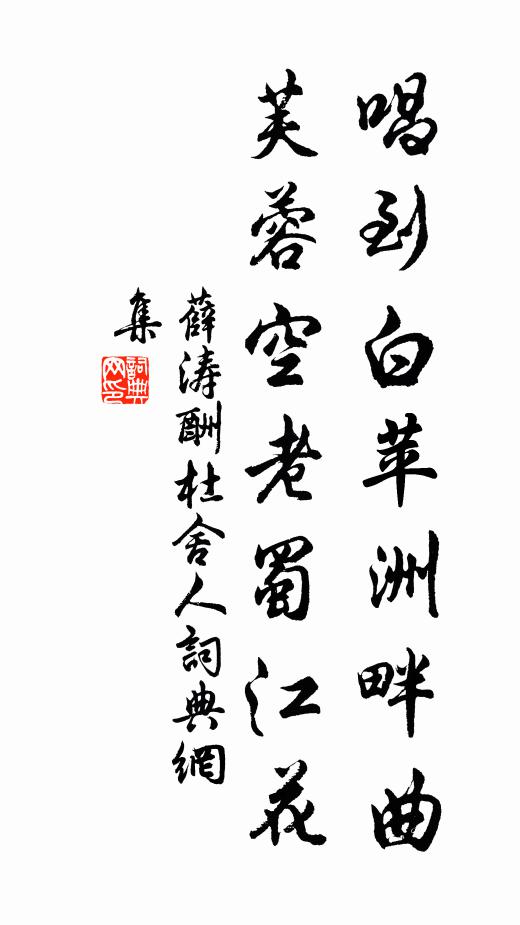 唱到白苹洲畔曲
芙蓉空老蜀江花
薛涛酬杜舍人詞典網
集
詞典网印